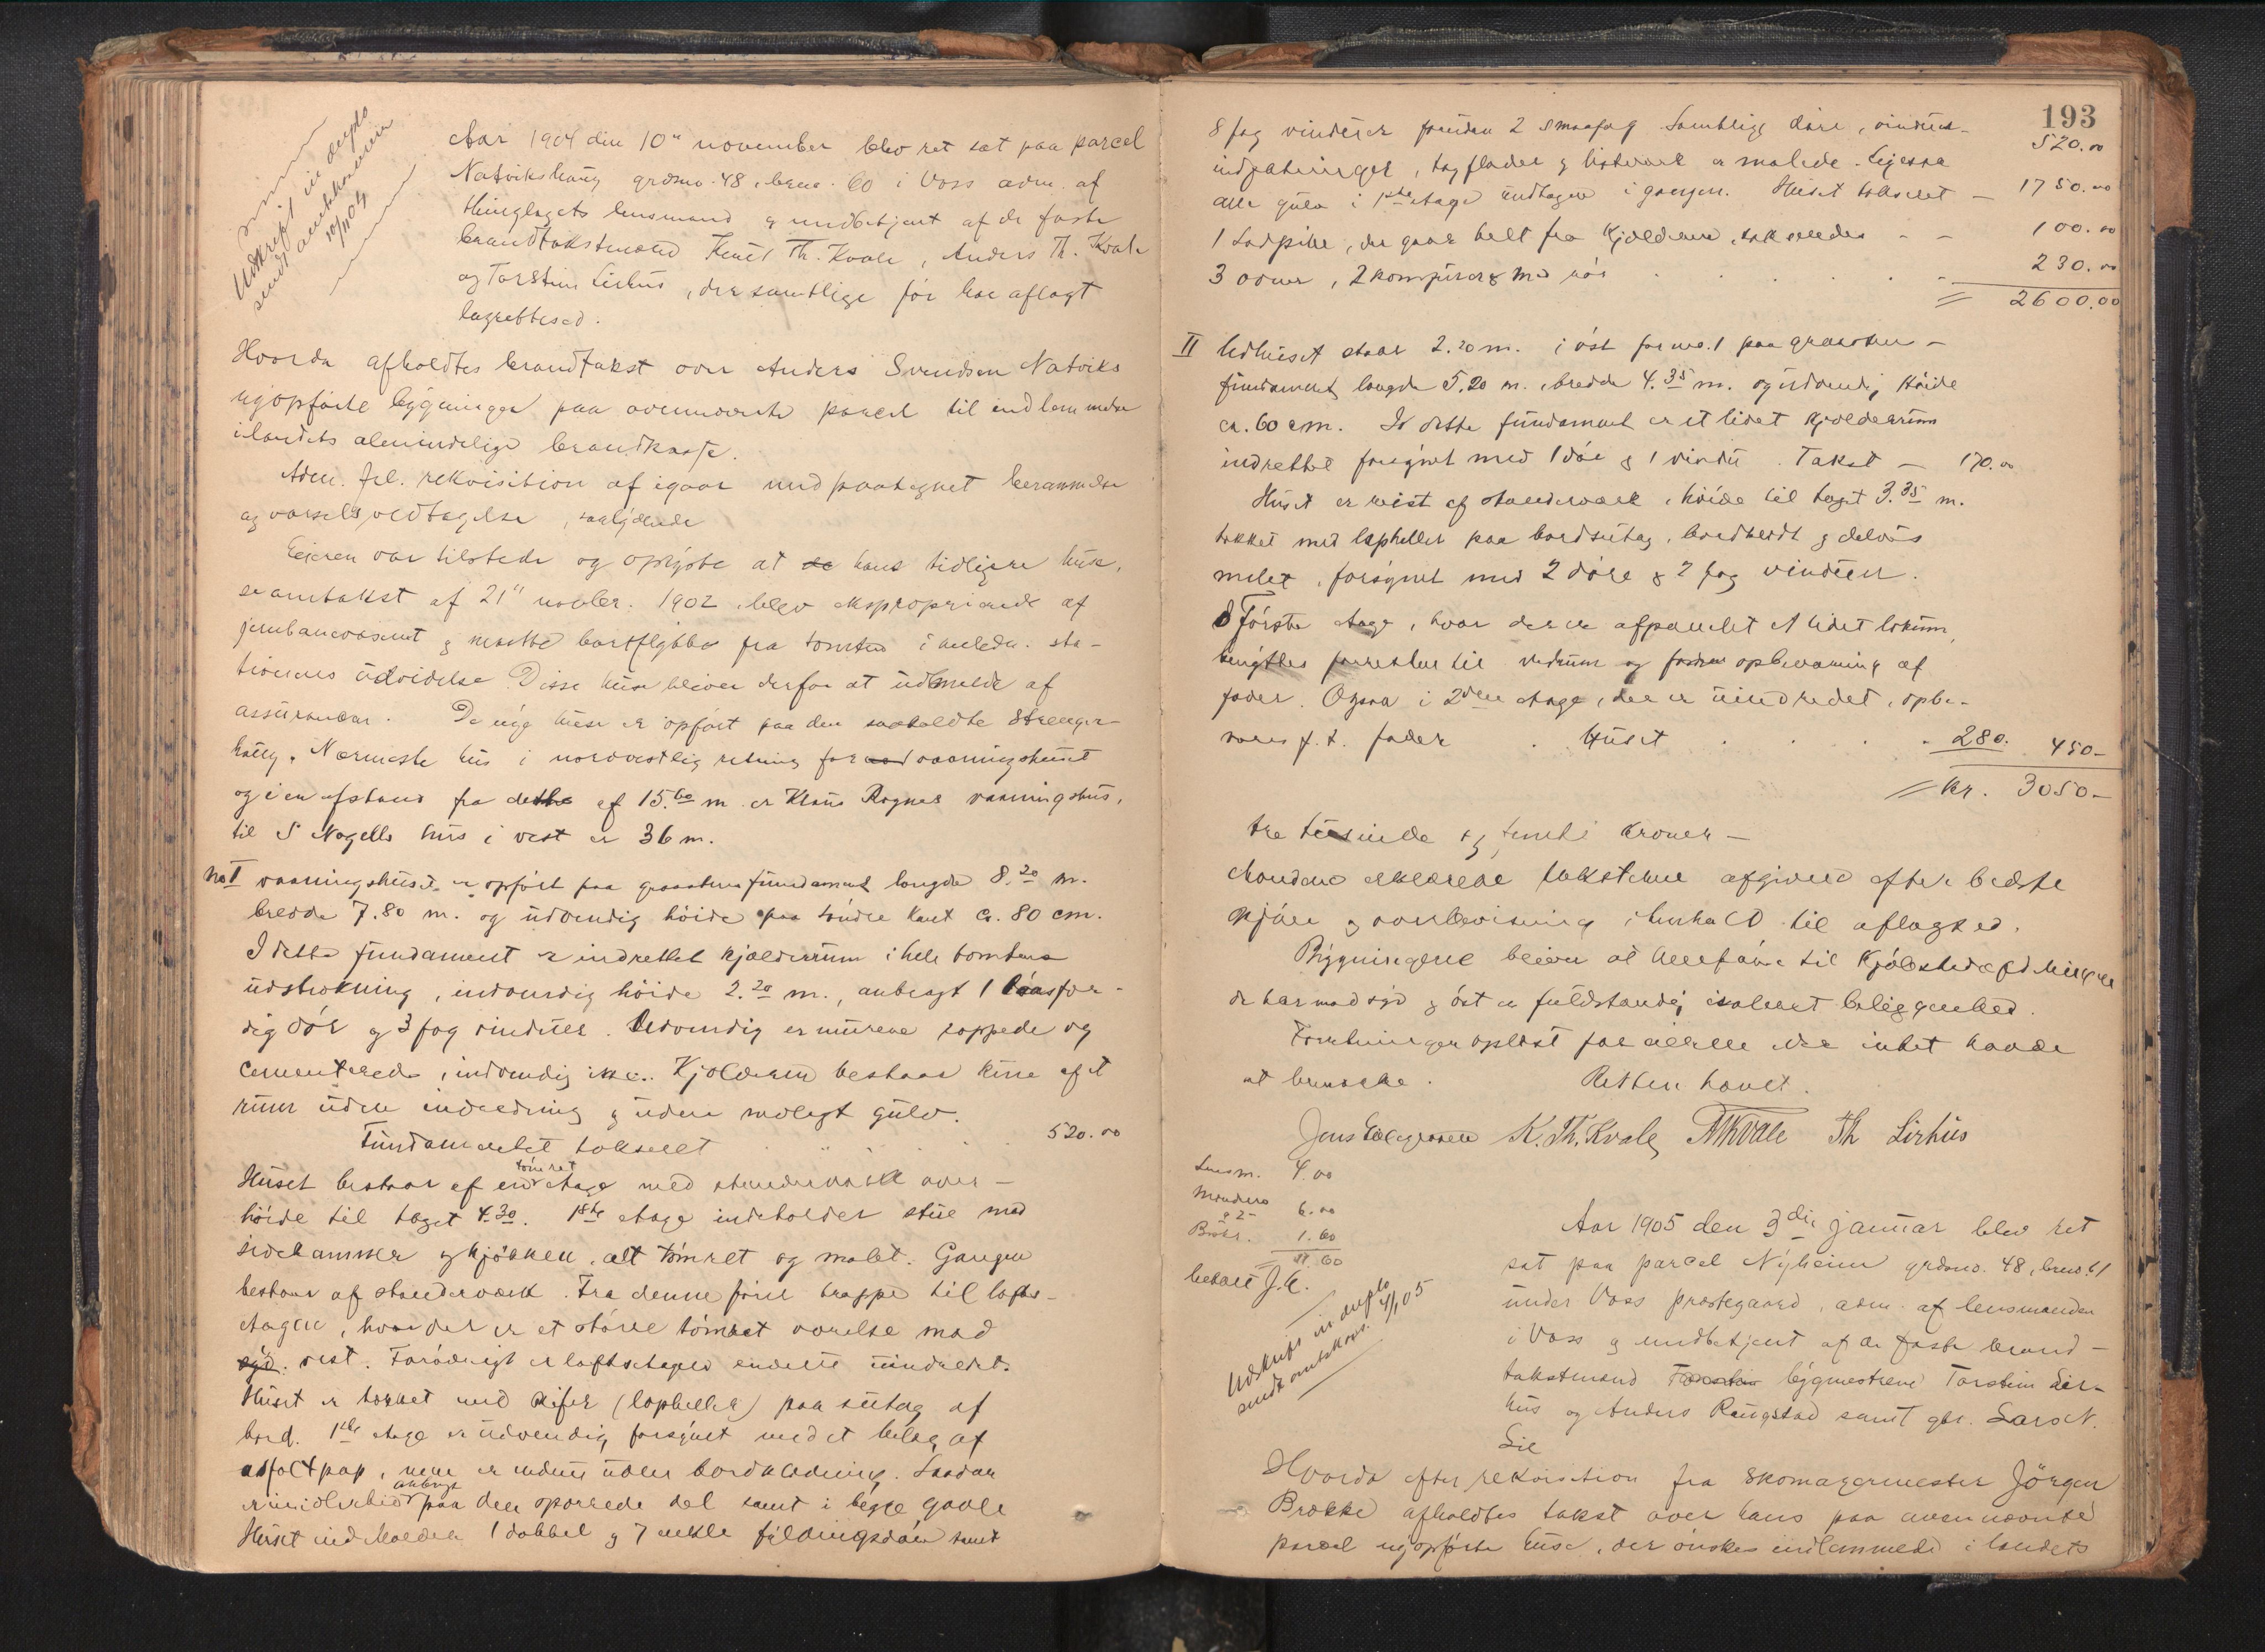 Udskrift in duplo
sendt amtskontoret
10/11 04
Aar 1904 den 10" november blev ret sat paa parcel
Natvikshaug grdsno. 48, brno. 60 i Voss adm. af
thinglagets lensmand og medbetjent af de faste
brandtakstmænd Knut Th. Kvale, Anders Th. Kvale
og Torstein Lirhus, der samtlige før har aflagt
lagrettesed.
Hvorda afholdtes brandtakst over Anders Svendsen Natviks
nyopførte bygninger paa ovennævnte parcel til indlemmelse
i landets almindelige brandkasse.
Adm. frl. rekvisition af igaar med paategnet berammelse
og varselsvedtagelse, saalydende
Eieren var tilstede og oplyste at de hans tidligere huse,
se amtakst af 21" novbr. 1902, blev eksproprierede af
jernbanevæsenet og maatte bortflyttes fra tomten i anledn. sta-
tionens udvidelse. Disse huse bliver derfor at udmelde af
assurancen. De nye huse er opført paa den saakaldte Strenger-
haug. Nærmeste hus i nordvestlig retning for vaaningshuset
og i en afstand fra dette af 15.60 m. er Klaus Rognes vaaningshus,
til S Nagells hus i vest er 36 m.
No I vaaningshuset er opført paa graastensfundament længde 8.20 m.
bredde 7.80 m. og udvendig høide paa søndre kant ca. 80 cm.
I dette fundament er indrettet kjælderrum i hele tomtens
udstrækning, indvendig høide 2.20 m., anbragt 1 laasfær-
dig dør og 3 fag vinduer. Udvendig er murene rappede og
cementerede, indvendig ikke. Kjælderen bestaar kun af et
rum uden indredning og uden molagt gulv.
Fundamentet taksert 520.00
Huset bestaar af en tømret etage med stenderværk over -
høide til taget 4.30. 1ste etage indeholder stue med
sidekammer og kjøkken, alt tømret og malet. Gangen
bestaar af stenderværk. Fra denne fører trappe til lofts-
etagen, hvor der er et større tømret værelse mod
syd. vest. Forøvrigt er loftsetagen endnu uindredet.
Huset er tækket med skifer (lapheller) paa sutag af
bord. 1ste etage er udvendig forsynet med et belæg af
asfaltpap, men er endnu uden bordklædning. Saadan
er imidlertid anbragt paa den opsatte del samt i begge gavle
Huset indeholder 1 dobbel og 7 enkle fyldningsdøre samt
193
8 fag vinduer foruden 2 smaafag. Samtlige døre, vinduer
indfatninger, tagflader og listværk er malede. Ligesaa 520.00
alle gulv i 1ste etage undtagen i gangen. Huset taksert - 1750.00
1 Ladpibe, der gaar helt fra kjælderen, takseredes - - 100.00
3 ovner, 2 komfyrer med rør 230.00
= 2600.00
II Udhuset staar 2.20 m. i øst for no. 1 paa graasten -
fundament længde 5.20 m. bredde 4.35 m. og udvendig høide
ca. 60 cm. I dette fundament er et lidet kjælderrum
indrettet forsynet med 1 dør og 1 vindu. Takst - 170.00
Huset er reist af stenderværk, høide til taget 3.35 m.
tækket med lapheller paa bordsutag, bordklædt og delvis
malet, forsynet med 2 døre og 2 fag vinduer.
I Første etage, hvor der er afpanelet et lidet lokum,
benyttes forresten til vedrum og opbevaring af
foder. Ogsaa i 2den etage, der er uindredet, opbe-
vares f. t. foder. Huset 280. 450-
= kr. 3050-
tre tusinde og femti kroner -
Mændene erklærede taksterne afgivne efter bedste
skjøn og overbevisning i henhold til aflagt ed.
Bygningerne bliver at henføre til Kjøbstadafdelingen
de har mod syd og øst en fuldstændig isoleret beliggenhed.
Forretningen oplæst for eieren der intet havde
at bemærke. Retten hævet.
K. Th. Kvale AThKvale Th Lirhus
Lensm. 4.00
Mændene
a 2- 6.00
Brskr. 1.60
11.60
betalt J.E.
Udskrift in duplo
sendt amtskont. 4/1 05
Aar 1905 den 3die januar blev ret
sat paa parcel Nyheim grdsno. 48, brno. 61
under Voss prestegaard, adm. af lensmanden
i Voss og medbetjent af de faste brand -
takstmænd Torstein bygmestrene Torstein Lir-
hus og Anders Rongstad samt gbr. Lars N.
Lie
Hvorda efter rekvisition fra skomagermester Jörgen
Brække afholdtes takst over hans paa ovennævnte
parcel nyopførte huse, der ønskes indlemmede i landets